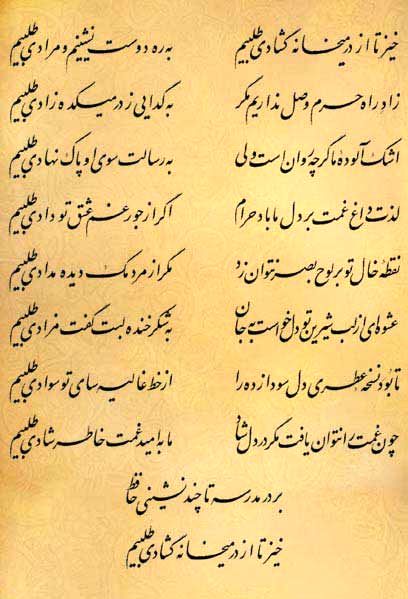 خیز تا از در میخانه گشادی طلبیم به ره دوست نشینیم و مرادی طلبیم
زاد راه حرم وصل نداریم مگر به گدایی ز در میکده زادی طلبیم
اشک آلوده ما گرچه روان است ولی به رسالت سوی او پاک نهادی طلبیم
لذت داغ غمت بر دل ما باد حرام اگر از جور غم عشق تو دادی طلبیم
نقطه خال تو بر لوح بصر نتوان زد مگر از مردمک دیده مدادی طلبیم
عشوه‌ای از لب شیرین تو دل خواست به جان به شکر خنده لبت گفت مزادی طلبیم
تا بود نسخه عطری دل سودازده را از خط غالیه سای تو سوادی طلبیم
چون غمت را نتوان یافت مگر در دل شاد ما به امید غمت خاطر شادی طلبیم
بر در مدرسه تا چند نشینی حافظ
خیز تا از در میخانه گشادی طلبیم